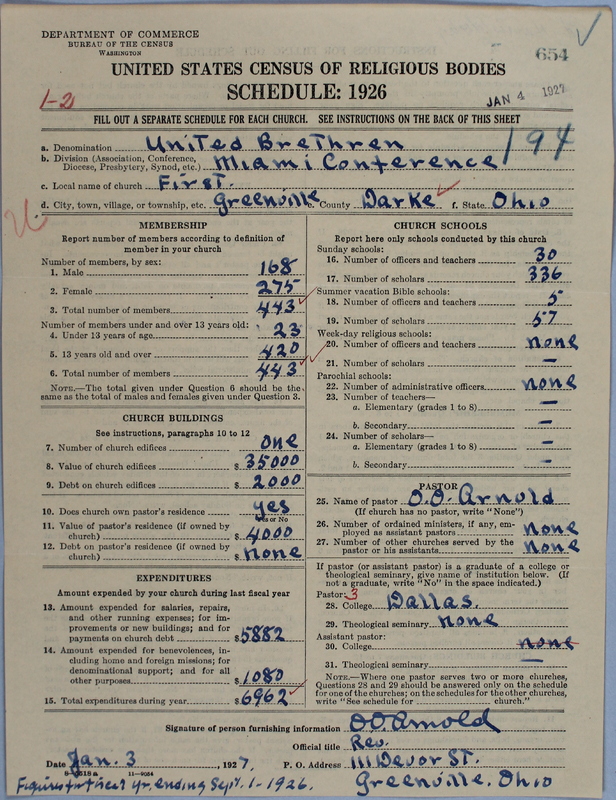 DEPARTMENT OF COMMERCE
BUREAU OF THE CENSUS
WASHINGTON
654
UNITED STATES CENSUS OF RELIGIOUS BODIES
SCHEDULE: 1926
1-2
JAN 4 1927
FILL OUT A SEPARATE SCHEDULE FOR EACH CHURCH. SEE INSTRUCTIONS ON THE BACK OF THIS SHEET
194
a. Denomination United Brethren
b. Division (Association, Conference, Diocese, Presbytery, Synod, etc.) Miami Conference
c. Local name of church First.
d. City, town, village, or township, etc. Greenville e. County Darke f. State Ohio
MEMBERSHIP
Report number of members according to definition of
member in your church
Number of members, by sex:
1. Male 168
2. Female 275
3. Total number of members 443
Number of members under and over 13 years old:
4. Under 13 years of age 23
5. 13 years old and over 420
6. Total number of members 443
NOTE.—The total given under Question 6 should be the
same as the total of males and females given under Question 3.
CHURCH BUILDINGS
See instructions, paragraphs 10 to 12
7. Number of church edifices one
8. Value of church edifices $ 35000
9. Debt on church edifices $ 2000
10. Does church own pastor's residence yes
Yes or No
11. Value of pastor's residence (if owned by
church) $ 4000
12. Debt on pastor's residence (if owned by
church) $ none
EXPENDITURES
Amount expended by your church during last fiscal year
13. Amount expended for salaries, repairs,
and other running expenses; for im-
provements or new buildings; and for
payments on church debt $ 5882
14. Amount expended for benevolences, in-
cluding home and foreign missions; for
denominational support; and for all
other purposes $ 1080
15. Total expenditures during year $ 6962
CHURCH SCHOOLS
Report here only schools conducted by this church
Sunday schools:
16. Number of officers and teachers 30
17. Number of scholars 336
Summer vacation Bible schools:
18. Number of officers and teachers 5
19. Number of scholars 57
Week-day religious schools:
20. Number of officers and teachers none
21. Number of scholars —
Parochial schools:
22. Number of administrative officers none
23. Number of teachers—
a. Elementary (grades 1 to 8) —
b. Secondary —
24. Number of scholars—
a. Elementary (grades 1 to 8) —
b. Secondary —
PASTOR
25. Name of pastor O.O. Arnold
(If church has no pastor, write "None")
26. Number of ordained ministers, if any, em-
ployed as assistant pastors none
27. Number of other churches served by the
pastor or his assistants none
If pastor (or assistant pastor) is a graduate of a college or
theological seminary, give name of institution below. (If
not a graduate, write "No" in the space indicated.)
Pastor: 3
28. College Dallas.
29. Theological seminary none
Assistant pastor:
30. College none
31. Theological seminary —
NOTE.—Where one pastor serves two or more churches,
Questions 28 and 29 should be answered only on the schedule
for one of the churches; on the schedules for the other churches,
write "See schedule for church."
Signature of person furnishing information O.O. Arnold
Official title Rev.
Date Jan. 3, 1927. P. O. Address 111 Devor St.
8-5518a 11-9034
Figures for fiscal yr. ending Sept. 1-1926. Greenville, Ohio